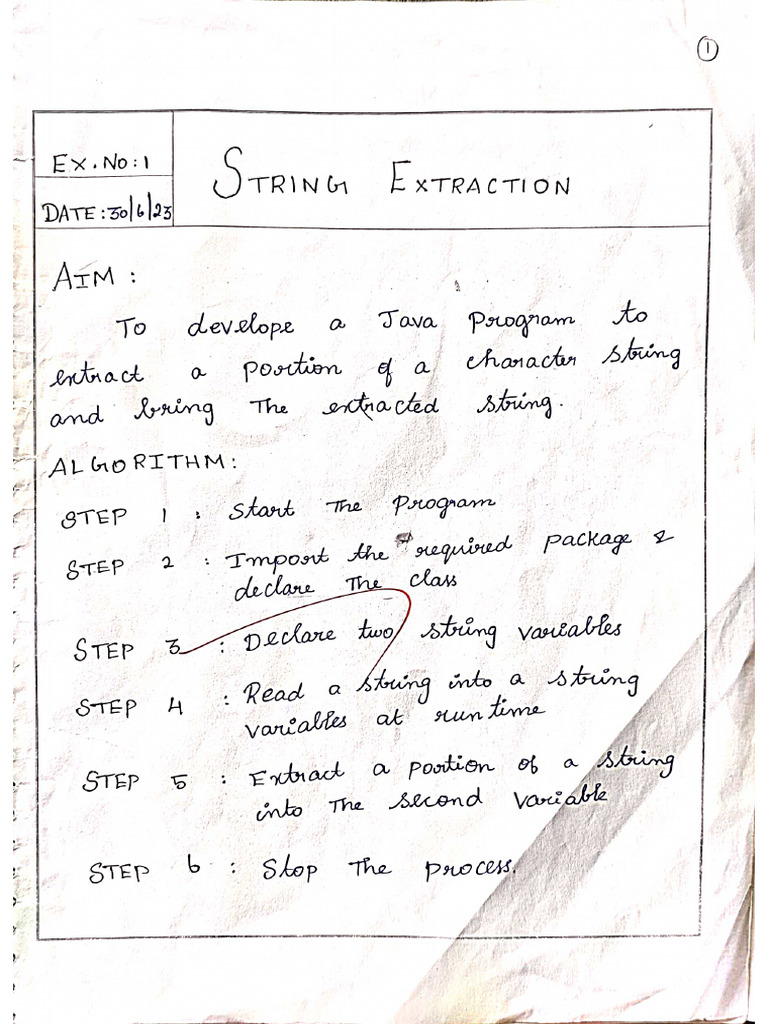 1
Ex. No: 1
STRING EXTRACTION
DATE: 30/6/23
AIM:
To develope a Java program to
extract a portion of a character string
and bring The extracted string.
ALGORITHM:
STEP 1 : Start The Program
STEP 2 : Import the required package &
declare The class
STEP 3 : Declare two string variables
STEP 4 : Read a string into a string
variables at runtime
STEP 5 : Extract a portion of a string
into The second variable
STEP 6 : Stop The process.